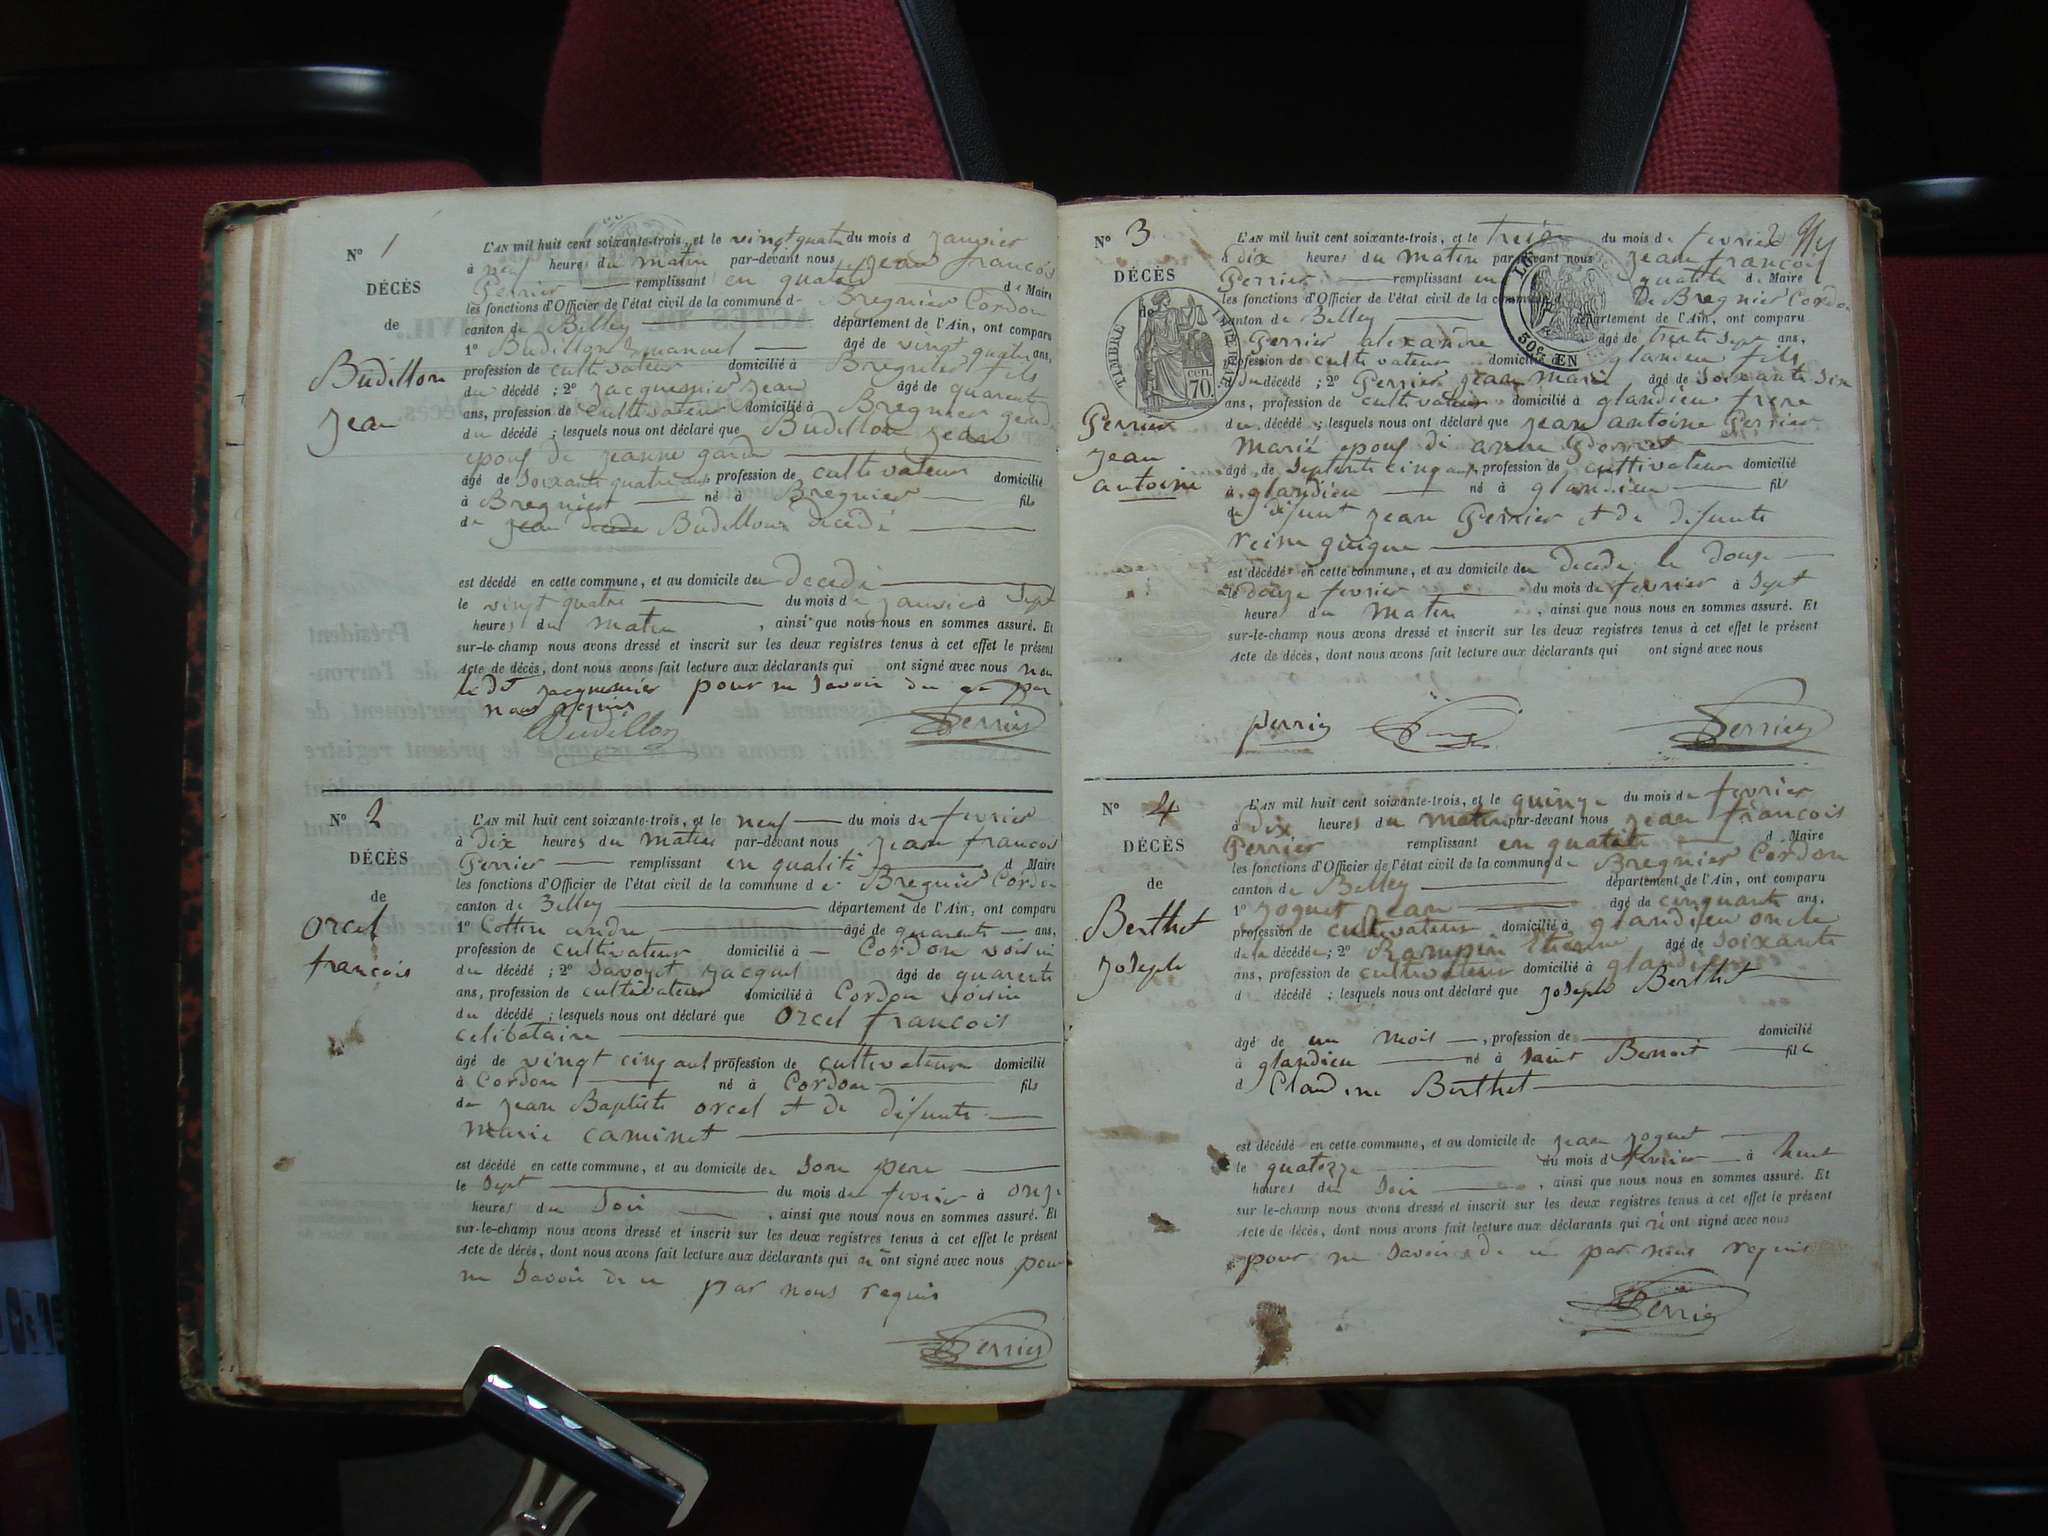 N° 1
DÉCÈS
de
Budillon
Jean
L'AN mil huit cent soixante-trois, et le vingt quatre du mois d janvier
à neuf heures du matin par-devant nous Jean francois
Perrier remplissant en qualité de Maire
les fonctions d'Officier de l'état civil de la commune d Bregnier Cordon
canton de Belley département de l'Ain, ont comparu
1° Budillon Emanuel âgé de vingt quatre ans,
profession de cultivateur domicilié à Bregnier fils
du décédé ; 2° Jacquesnier Jean âgé de quarente
ans, profession de cultivateur domicilié à Bregnier gendre
du décédé ; lesquels nous ont déclaré que Budillon Jean
epous de jeanne
âgé de Soixante quatre ans profession de cultivateur domicilié
à Bregnier né à Bregnier fils
de jean Budillon décédé
est décédé en cette commune, et au domicile de décédé
le vingt quatre du mois de janvier à Sept
heures du matin , ainsi que nous nous en sommes assuré. Et
sur-le-champ nous avons dressé et inscrit sur les deux registres tenus à cet effet le présent
Acte de décès, dont nous avons fait lecture aux déclarants qui ont signé avec nous non
le dt jacquesnier pour ne Savoir de ce par
nous requis
Budillon Perrier
N° 2
DÉCÈS
de
Orcel
françois
L'AN mil huit cent soixante-trois, et le neuf du mois de fevrier
à dix heures du matin par-devant nous jean francois
Perrier remplissant en qualité d Maire
les fonctions d'Officier de l'état civil de la commune de Bregnier Cordon
canton de Belley département de l'Ain, ont comparu
1° Cottin andre âgé de quarente ans,
profession de cultivateur domicilié à Cordon voisin
du décédé ; 2° Savoyet Jacques âgé de quarente
ans, profession de cultivateur domicilié à Cordon voisin
du décédé ; lesquels nous ont déclaré que Orcel francois
celibataire
âgé de vingt cinq ans profession de cultivateur domicilié
à Cordon né à Cordon fils
de jean Baptiste orcel et de defunte
marie caminet
est décédé en cette commune, et au domicile de Son pere
le Sept du mois de fevrier à onze
heures du Soir , ainsi que nous nous en sommes assuré. Et
sur-le-champ nous avons dressé et inscrit sur les deux registres tenus à cet effet le présent
Acte de décès, dont nous avons fait lecture aux déclarants qui n ont signé avec nous pour
ne Savoir de ce par nous requis
Perrier
N° 3
DÉCÈS
de
TIMBRE IMPERIAL
70 cen.
Perrier
Jean
antoine
L'AN mil huit cent soixante-trois, et le treize du mois de fevrier 2
à dix heures du matin par-devant nous jean françois
Perrier remplissant en qualité de Maire
les fonctions d'Officier de l'état civil de la commune d de Bregnier Cordon
canton de Belley département de l'Ain, ont comparu
50c. EN
Perrier alexandre âgé de trente Sept ans,
profession de cultivateur domicilié à glandieu fils
du décédé ; 2° Perrier jean marie âgé de Soixante dix
ans, profession de cultivateur domicilié à glandieu frere
du décédé ; lesquels nous ont déclaré que jean antoine Perrier
Marié epous de anne
âgé de Septente cinq ans, profession de cultivateur domicilié
à glandieu né à glandieu fils
de defunt jean Perrier et de defunte
reine guigue
est décédé en cette commune, et au domicile de decede le douze
le douze fevrier du mois de fevrier à Sept
heures du matin , ainsi que nous nous en sommes assuré. Et
sur-le-champ nous avons dressé et inscrit sur les deux registres tenus à cet effet le présent
Acte de décès, dont nous avons fait lecture aux déclarants qui ont signé avec nous
perrier Perrier
N° 4
DÉCÈS
de
Berthet
Joseph
L'AN mil huit cent soixante-trois, et le quinze du mois de fevrier
à dix heures du matin par-devant nous jean françois
Perrier remplissant en qualité d Maire
les fonctions d'Officier de l'état civil de la commune de Bregnier Cordon
canton de Belley département de l'Ain, ont comparu
1° joguet jean âgé de cinquante ans,
profession de cultivateur domicilié à glandieu oncle
de la décédée ; 2° Rampin Etienne âgé de Soixante
ans, profession de cultivateur domicilié à glandieu
d décédé ; lesquels nous ont déclaré que joseph Berthet
âgé de un mois , profession de domicilié
à glandieu né à Saint Benoit fils
d Claudine Berthet
est décédé en cette commune, et au domicile de jean joguet
le quatorze du mois d fevrier à huit
heures du Soir , ainsi que nous nous en sommes assuré. Et
sur-le-champ nous avons dressé et inscrit sur les deux registres tenus à cet effet le présent
Acte de décès, dont nous avons fait lecture aux déclarants qui n ont signé avec nous
pour ne Savoir de ce par nous requis
Perrier